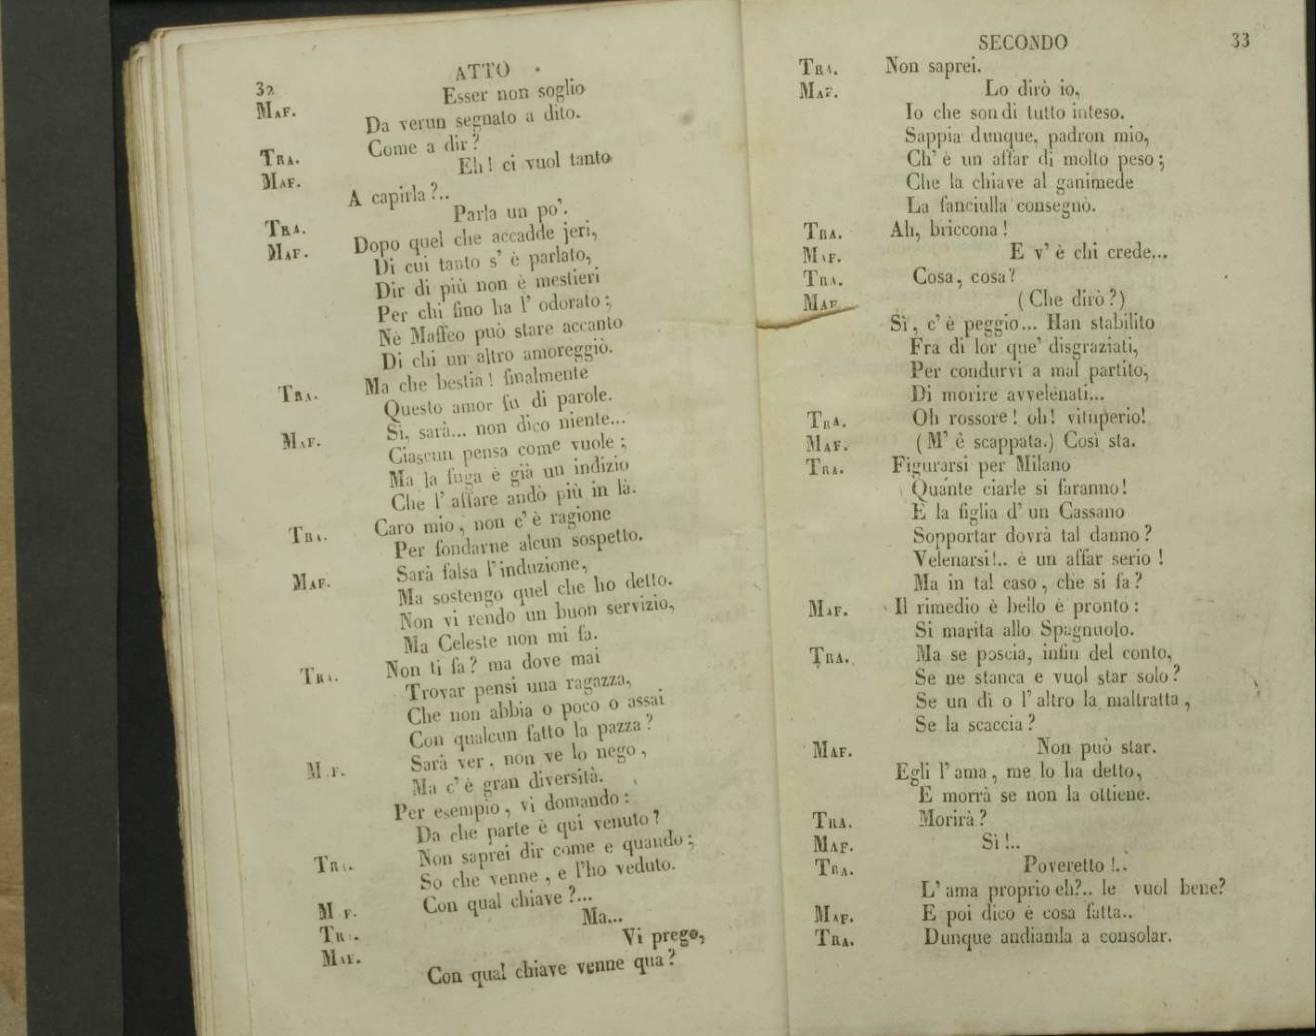 32 ATTO
MAF. Esser non soglio
Da verun segnato a dito.
TRA. Come a dir?
MAF. Eh! ci vuol tanto
A capirla?..
TRA. Parla un po'.
MAF. Dopo quel che accadde jeri,
Di cui tanto s' è parlato,
Dir di più non è mestieri
Per chi fino ha l' odorato;
Nè Maffeo può stare accanto
Di chi un altro amoreggiò.
TRA. Ma che bestia! finalmente
Questo amor fu di parole.
MAF. Sì, sarà... non dico niente...
Ciascun pensa come vuole;
Ma la fuga è già un indizio
Che l' affare andò più in là.
TRA. Caro mio, non c' è ragione
Per fondarne alcun sospetto.
MAF. Sarà falsa l'induzione,
Ma sostengo quel che ho detto.
Non vi rendo un buon servizio,
Ma Celeste non mi fa.
TRA. Non ti fa? ma dove mai
Trovar pensi una ragazza,
Che non abbia o poco o assai
Con qualcun fatto la pazza?
MAF. Sarà ver, non ve lo nego,
Ma c' è gran diversità.
Per esempio, vi domando:
Da che parte è qui venuto?
TRA. Non saprei dir come e quando;
So che venne, e l'ho veduto.
MAF. Con qual chiave?...
TRA. Ma...
MAF. Vi prego,
Con qual chiave venne qua?
SECONDO 33
TRA. Non saprei.
MAF. Lo dirò io,
Io che son di tutto inteso.
Sappia dunque, padron mio,
Ch' è un affar di molto peso;
Che la chiave al ganimede
La fanciulla consegnò.
TRA. Ah, briccona!
MAF. E v' è chi crede...
TRA. Cosa, cosa?
MAF. (Che dirò?)
Sì, c' è peggio... Han stabilito
Fra di lor que' disgraziati,
Per condurvi a mal partito,
Di morire avvelenati...
TRA. Oh rossore! oh! vituperio!
MAF. (M' è scappata.) Così sta.
TRA. Figurarsi per Milano
Quante ciarle si faranno!
E la figlia d' un Cassano
Sopportar dovrà tal danno?
Velenarsi!.. è un affar serio!
Ma in tal caso, che si fa?
MAF. Il rimedio è bello e pronto:
Si marita allo Spagnuolo.
TRA. Ma se poscia, infin del conto,
Se ne stanca e vuol star solo?
Se un dì o l' altro la maltratta,
Se la scaccia?
MAF. Non può star.
Egli l' ama, me lo ha detto,
E morrà se non la ottiene.
TRA. Morirà?
MAF. Sì!..
TRA. Poveretto!..
L' ama proprio eh?.. le vuol bene?
MAF. E poi dico è cosa fatta..
TRA. Dunque andiamla a consolar.